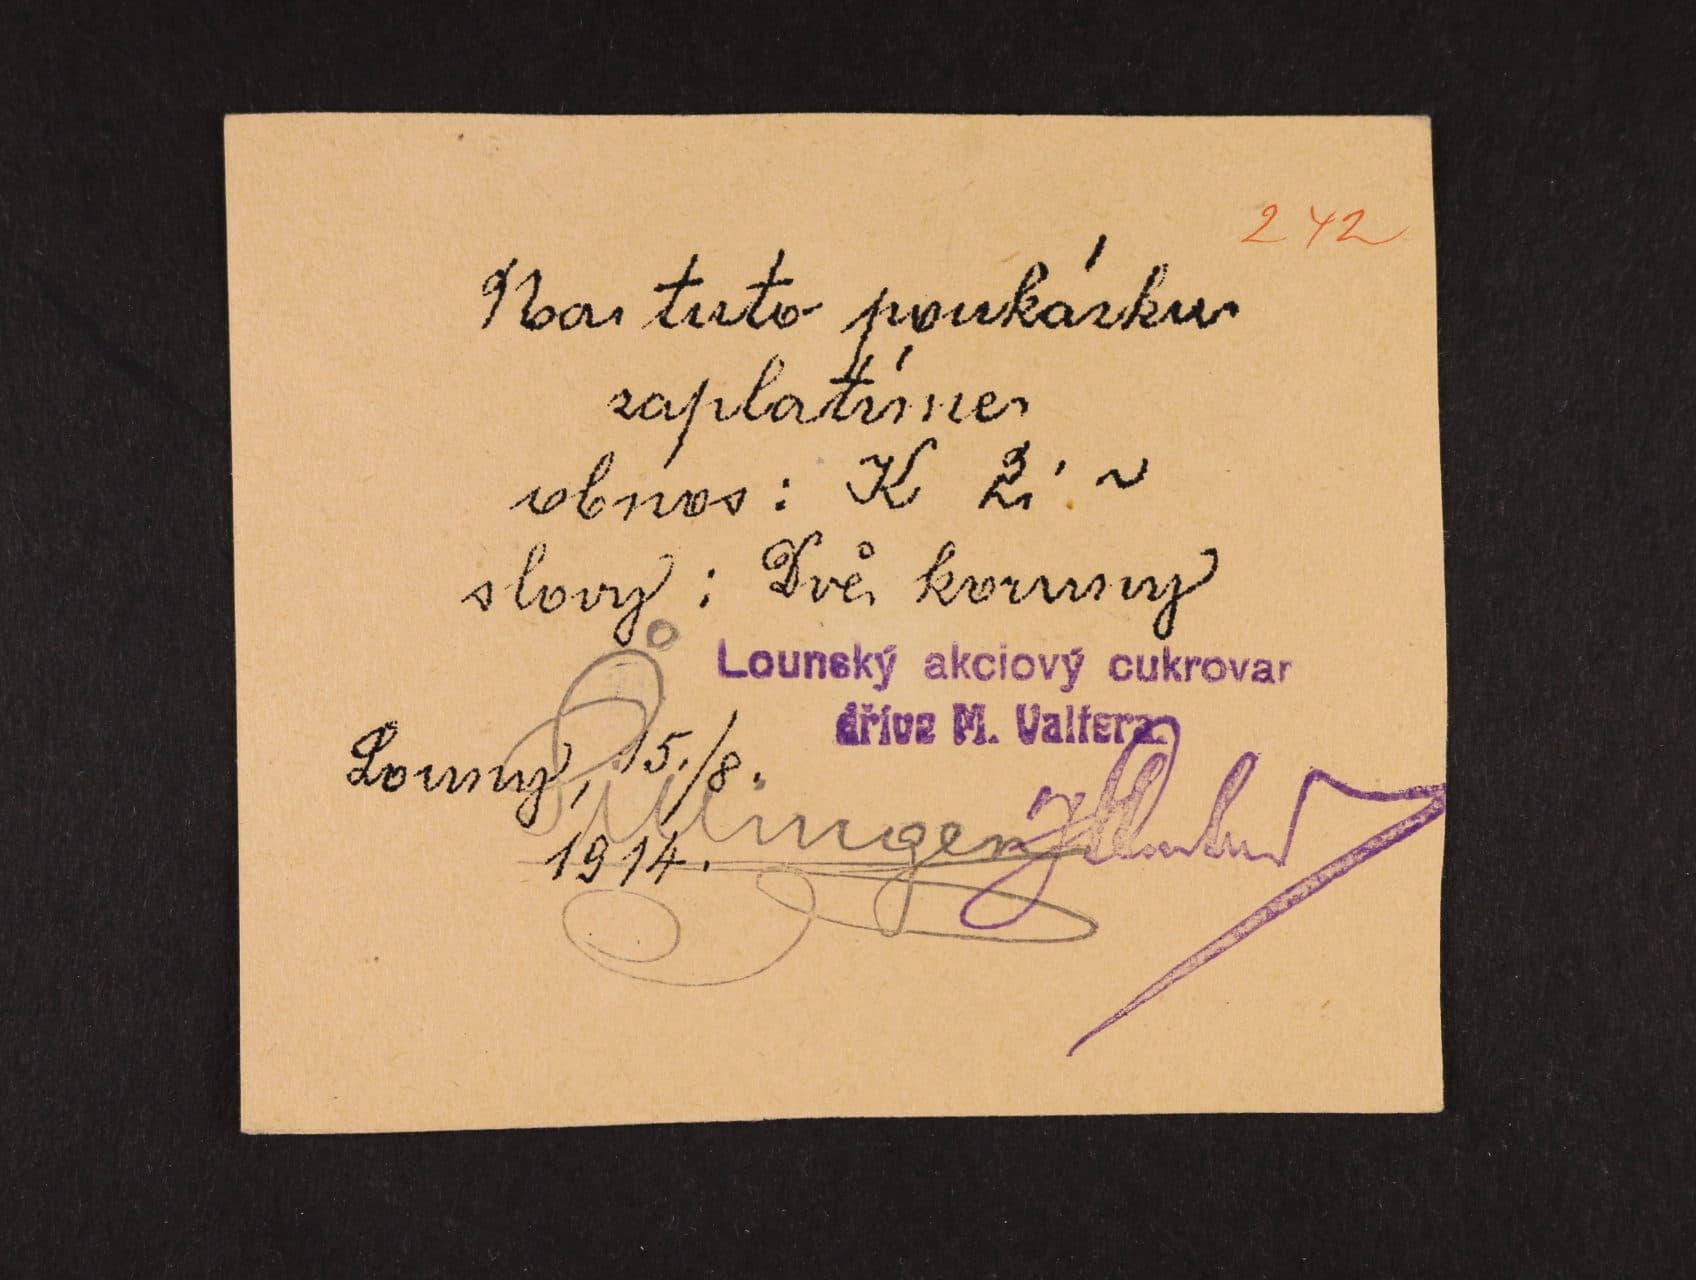 242
Na tuto poukázku
zaplatíme
obnos: K 2.~
slovy: Dvě koruny
Lounský akciový cukrovar
dříve M. Valtera.
Louny, 15./8.
1914.